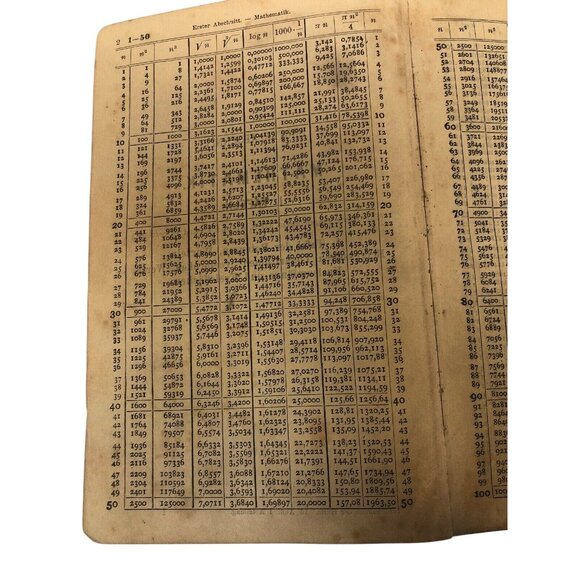 2 1—50 Erster Abschnitt. — Mathematik.
n n² n³ √n ∛n log n 1000·1/n πn πn²/4 n
1 1 1 1,0000 1,0000 0,00000 1000,000 3,142 0,7854 1
2 4 8 1,4142 1,2599 0,30103 500,000 6,283 3,1416 2
3 9 27 1,7321 1,4422 0,47712 333,333 9,425 7,0686 3
4 16 64 2,0000 1,5874 0,60206 250,000 12,566 12,5664 4
5 25 125 2,2361 1,7100 0,69897 200,000 15,708 19,6350 5
6 36 216 2,4495 1,8171 0,77815 166,667 18,850 28,2743 6
7 49 343 2,6458 1,9129 0,84510 142,857 21,991 38,4845 7
8 64 512 2,8284 2,0000 0,90309 125,000 25,133 50,2655 8
9 81 729 3,0000 2,0801 0,95424 111,111 28,274 63,6173 9
10 100 1000 3,1623 2,1544 1,00000 100,000 31,416 78,5398 10
11 121 1331 3,3166 2,2240 1,04139 90,9091 34,558 95,0332 11
12 144 1728 3,4641 2,2894 1,07918 83,3333 37,699 113,097 12
13 169 2197 3,6056 2,3513 1,11394 76,9231 40,841 132,732 13
14 196 2744 3,7417 2,4101 1,14613 71,4286 43,982 153,938 14
15 225 3375 3,8730 2,4662 1,17609 66,6667 47,124 176,715 15
16 256 4096 4,0000 2,5198 1,20412 62,5000 50,265 201,062 16
17 289 4913 4,1231 2,5713 1,23045 58,8235 53,407 226,980 17
18 324 5832 4,2426 2,6207 1,25527 55,5556 56,549 254,469 18
19 361 6859 4,3589 2,6684 1,27875 52,6316 59,690 283,529 19
20 400 8000 4,4721 2,7144 1,30103 50,0000 62,832 314,159 20
21 441 9261 4,5826 2,7589 1,32222 47,6190 65,973 346,361 21
22 484 10648 4,6904 2,8020 1,34242 45,4545 69,115 380,133 22
23 529 12167 4,7958 2,8439 1,36173 43,4783 72,257 415,476 23
24 576 13824 4,8990 2,8845 1,38021 41,6667 75,398 452,389 24
25 625 15625 5,0000 2,9240 1,39794 40,0000 78,540 490,874 25
26 676 17576 5,0990 2,9625 1,41497 38,4615 81,681 530,929 26
27 729 19683 5,1962 3,0000 1,43136 37,0370 84,823 572,555 27
28 784 21952 5,2915 3,0366 1,44716 35,7143 87,965 615,752 28
29 841 24389 5,3852 3,0723 1,46240 34,4828 91,106 660,520 29
30 900 27000 5,4772 3,1072 1,47712 33,3333 94,248 706,858 30
31 961 29791 5,5678 3,1414 1,49136 32,2581 97,389 754,768 31
32 1024 32768 5,6569 3,1748 1,50515 31,2500 100,531 804,248 32
33 1089 35937 5,7446 3,2075 1,51851 30,3030 103,673 855,299 33
34 1156 39304 5,8310 3,2396 1,53148 29,4118 106,814 907,920 34
35 1225 42875 5,9161 3,2711 1,54407 28,5714 109,956 962,113 35
36 1296 46656 6,0000 3,3019 1,55630 27,7778 113,097 1017,88 36
37 1369 50653 6,0828 3,3322 1,56820 27,0270 116,239 1075,21 37
38 1444 54872 6,1644 3,3620 1,57978 26,3158 119,381 1134,11 38
39 1521 59319 6,2450 3,3912 1,59106 25,6410 122,522 1194,59 39
40 1600 64000 6,3246 3,4200 1,60206 25,0000 125,66 1256,64 40
41 1681 68921 6,4031 3,4482 1,61278 24,3902 128,81 1320,25 41
42 1764 74088 6,4807 3,4760 1,62325 23,8095 131,95 1385,44 42
43 1849 79507 6,5574 3,5034 1,63347 23,2558 135,09 1452,20 43
44 1936 85184 6,6332 3,5303 1,64345 22,7273 138,23 1520,53 44
45 2025 91125 6,7082 3,5569 1,65321 22,2222 141,37 1590,43 45
46 2116 97336 6,7823 3,5830 1,66276 21,7391 144,51 1661,90 46
47 2209 103823 6,8557 3,6088 1,67210 21,2766 147,65 1734,94 47
48 2304 110592 6,9282 3,6342 1,68124 20,8333 150,80 1809,56 48
49 2401 117649 7,0000 3,6593 1,69020 20,4082 153,94 1885,74 49
50 2500 125000 7,0711 3,6840 1,69897 20,0000 157,08 1963,50 50
n n²
50 2500 125000
51 2601
52 2704
53 2809
54 2916
55 3025
56 3136
57 3249
58 3364
59 3481
60 3600
61 3721
62 3844
63 3969
64 4096
65 4225
66 4356
67 4489
68 4624
69 4761
70 4900
71 5041
72 5184
73 5329
74 5476
75 5625
76 5776
77 5929
78 6084
79 6241
80 6400
81 6561
82 6724
83 6889
84 7056
85 7225
86 7396
87 7569
88 7744
89 7921
90 8100
91 8281
92 8464
93 8649
94 8836
95 9025
96 9216
97 9409
98 9604
99 9801
100 10000